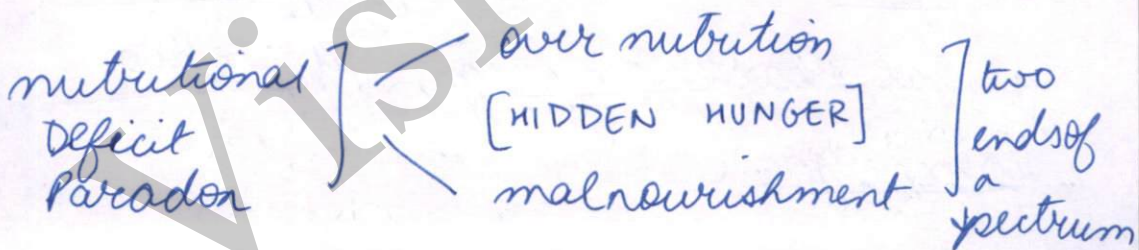 nutritional
Deficit
Paradox
over nutrition
[HIDDEN HUNGER]
malnourishment
two
ends of
a
spectrum